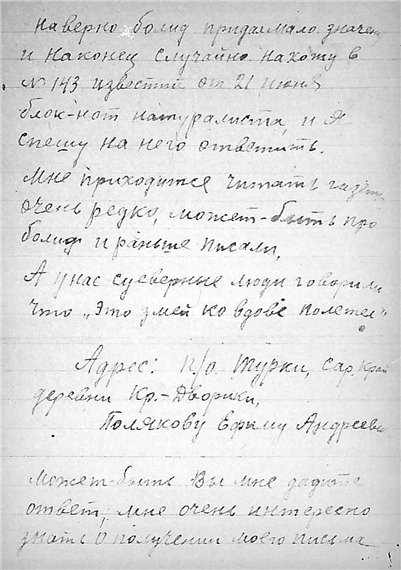 наверно болид придал мало значен
и наконец случайно нахожу в
№ 143 известий от 21 июня
блок-нот натуралиста, и я
спешу на него ответить.
Мне приходится читать газеты
очень редко, может-быть про
болид и раньше писали,
А у нас суеверные люди говорили
что „Это змей ко вдове полетел"
Адрес: п/о. Турки, Сар. Край
деревни Кр.-Дворики,
Полякову Ефиму Андрееви
может-быть Вы мне дадите
ответ, мне очень интересно
знать о получении моего письма